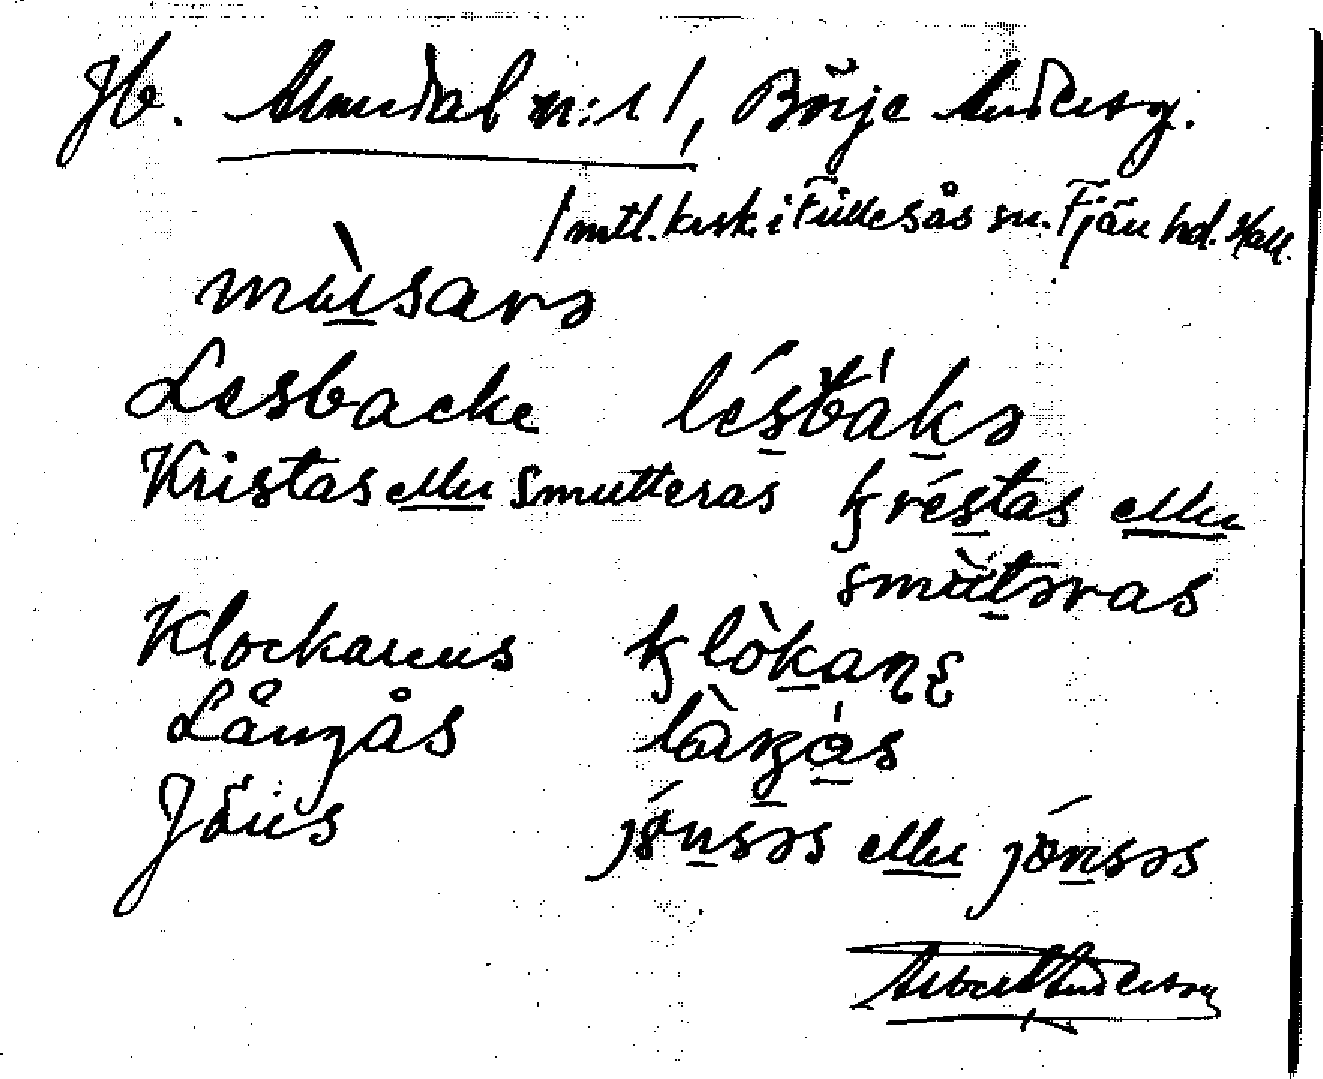 Jb. Almedal n:r 1/, Börje Anderson.
/mtl. kusk. i Fullesås sn. Fjäre hd. Hall.
mùsarə
Lesbacke lésbákə
Kristas eller Smutteras kréstas eller
smùtəras
Klockarens klòkaɳs
Långås làŋás
Jöns jónsəs eller jönsəs
Albert Anderson